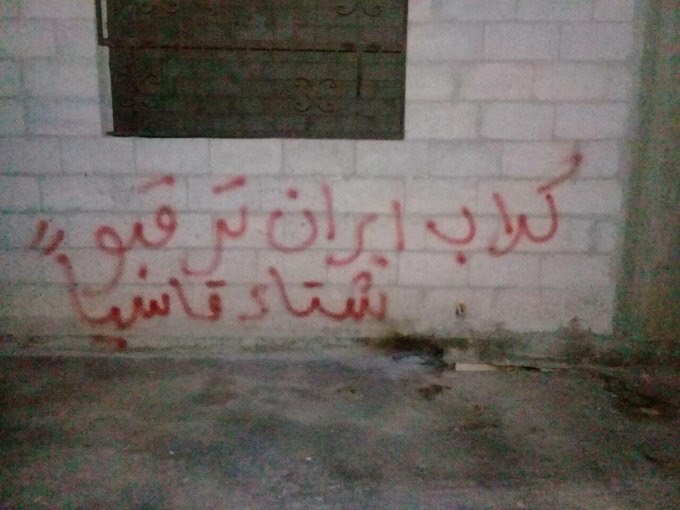 كُلاب ايران ترقبو
شتاء قاسياً "